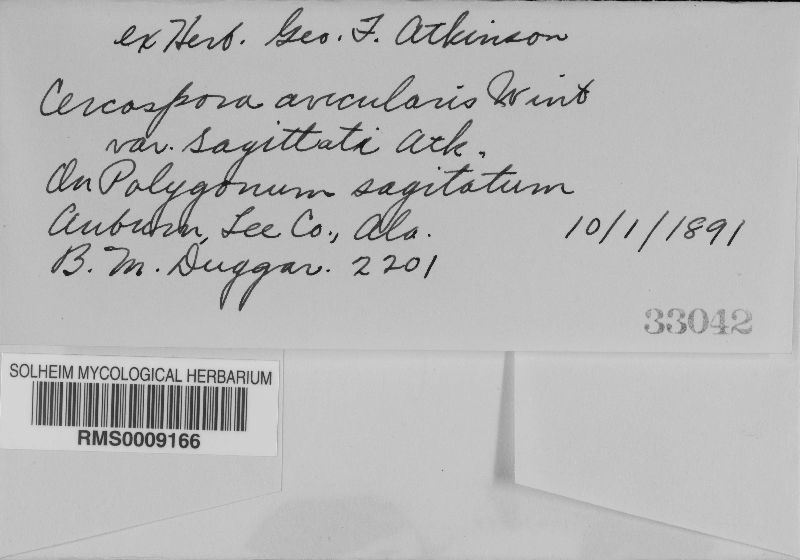 ex Herb. Geo. F. Atkinson
Cercospora avicularis Wint
var. sagittati Atk.
On Polygonum sagitatum
Auburn, Lee Co., Ala. 10/1/1891
B. M. Duggar. 2201
33042
SOLHEIM MYCOLOGICAL HERBARIUM
RMS0009166